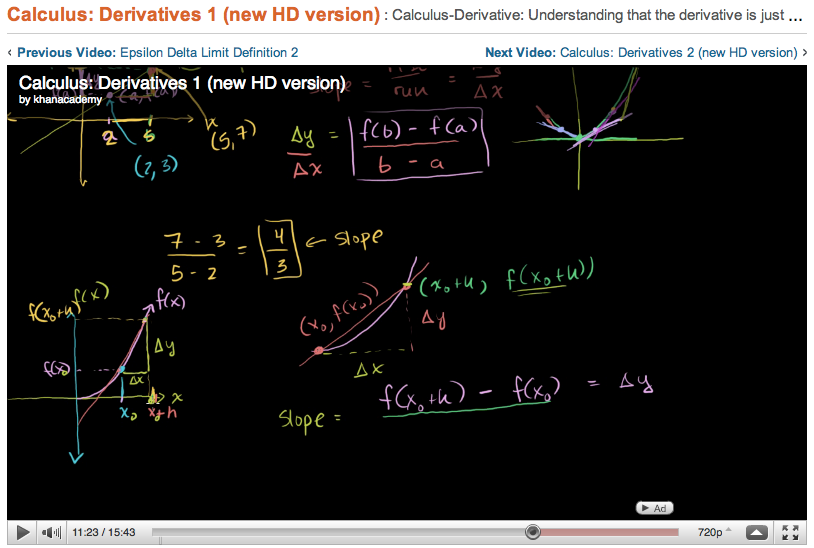 Calculus: Derivatives 1 (new HD version) : Calculus-Derivative: Understanding that the derivative is just ...
‹ Previous Video: Epsilon Delta Limit Definition 2
Next Video: Calculus: Derivatives 2 (new HD version) ›
Calculus: Derivatives 1 (new HD version)
by khanacademy
slope = / run = / Δx
2 5 x (5,7)
(2,3)
Δy/Δx = f(b) - f(a) / b - a
7 - 3 / 5 - 2 = 4/3 ← slope
f(x)
f(x₀+h)
f(x)
f(x₀)
Δy
Δx
x
x₀ x₀+h
(x₀, f(x₀))
(x₀+h, f(x₀+h))
Δy
Δx
slope = f(x₀+h) - f(x₀) = Δy
Ad
11:23 / 15:43
720p